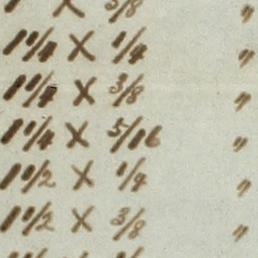 X 3/8 "
1 1/4 X 1/4 "
1 1/4 X 3/8 "
1 1/4 X 5/16 "
1 1/2 X 1/4 "
1 1/2 X 3/8 "